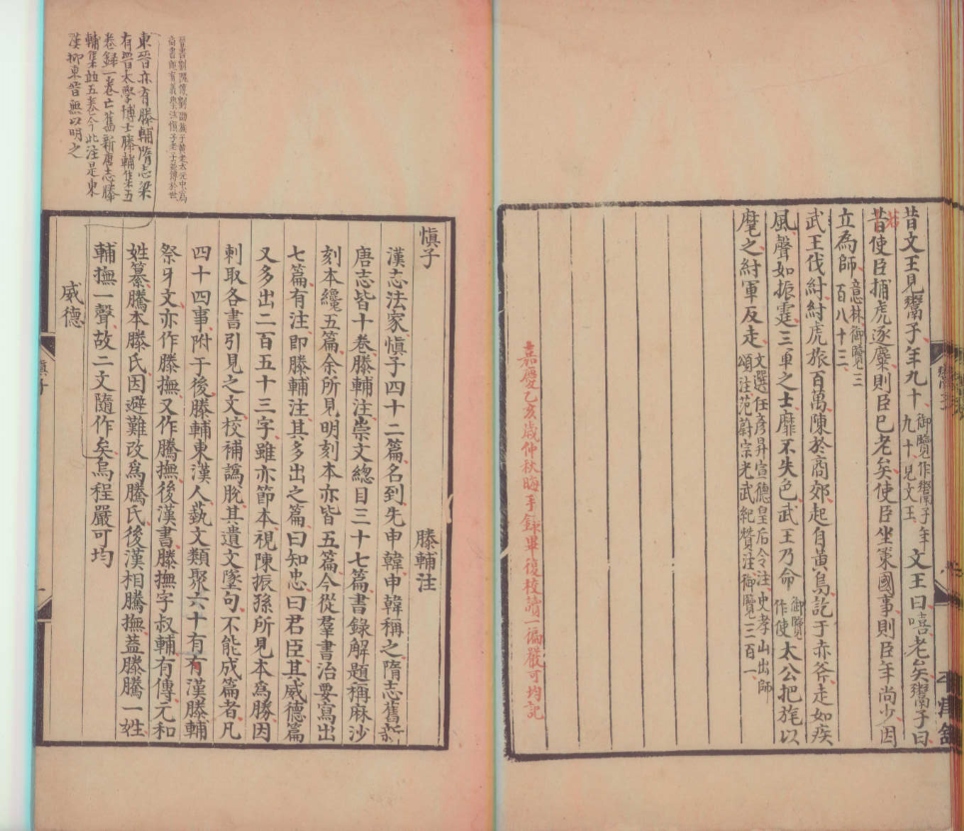 昔文王見鬻子年九十御覽作鬻子年九十見文王文王曰嘻老矣鬻子曰
昔使臣捕虎逐麋則臣已老矣使臣坐策國事則臣年尚少因
立為師意林御覽三百八十三
武王伐紂紂虎旅百萬陳於商郊起自黃鳥訖于赤斧走如疾
風聲如振霆三軍之士靡不失色武王乃命御覽作使太公把旄以
麾之紂軍反走文選任彥昇宣德皇后令注史孝山出師頌注范蔚宗光武紀贊注御覽三百一
嘉慶乙亥歲仲秋晦手錄畢復校讀一徧嚴可均記
東晉亦有滕輔隋志梁
有晉太學博士滕輔集五
卷錄一卷亡舊新唐志滕
輔集並五卷今此注是東
漢抑東晉無以明之
慎子
滕輔注
漢志法家慎子四十二篇名到先申韓申韓稱之隋志舊新
唐志皆十卷滕輔注崇文總目三十七篇書錄解題稱麻沙
刻本纔五篇余所見明刻本亦皆五篇今從羣書治要寫出
七篇有注即滕輔注其多出之篇曰知忠曰君臣其威德篇
又多出二百五十三字雖亦節本視陳振孫所見本為勝因
刺取各書引見之文校補譌脫其遺文墜句不能成篇者凡
四十四事附于後滕輔東漢人藝文類聚六十有有漢滕輔
祭牙文亦作滕撫又作騰撫後漢書滕撫字叔輔有傳元和
姓纂騰本滕氏因避難改為騰氏後漢相騰撫蓋滕騰一姓
輔撫一聲故二文隨作矣烏程嚴可均
威德